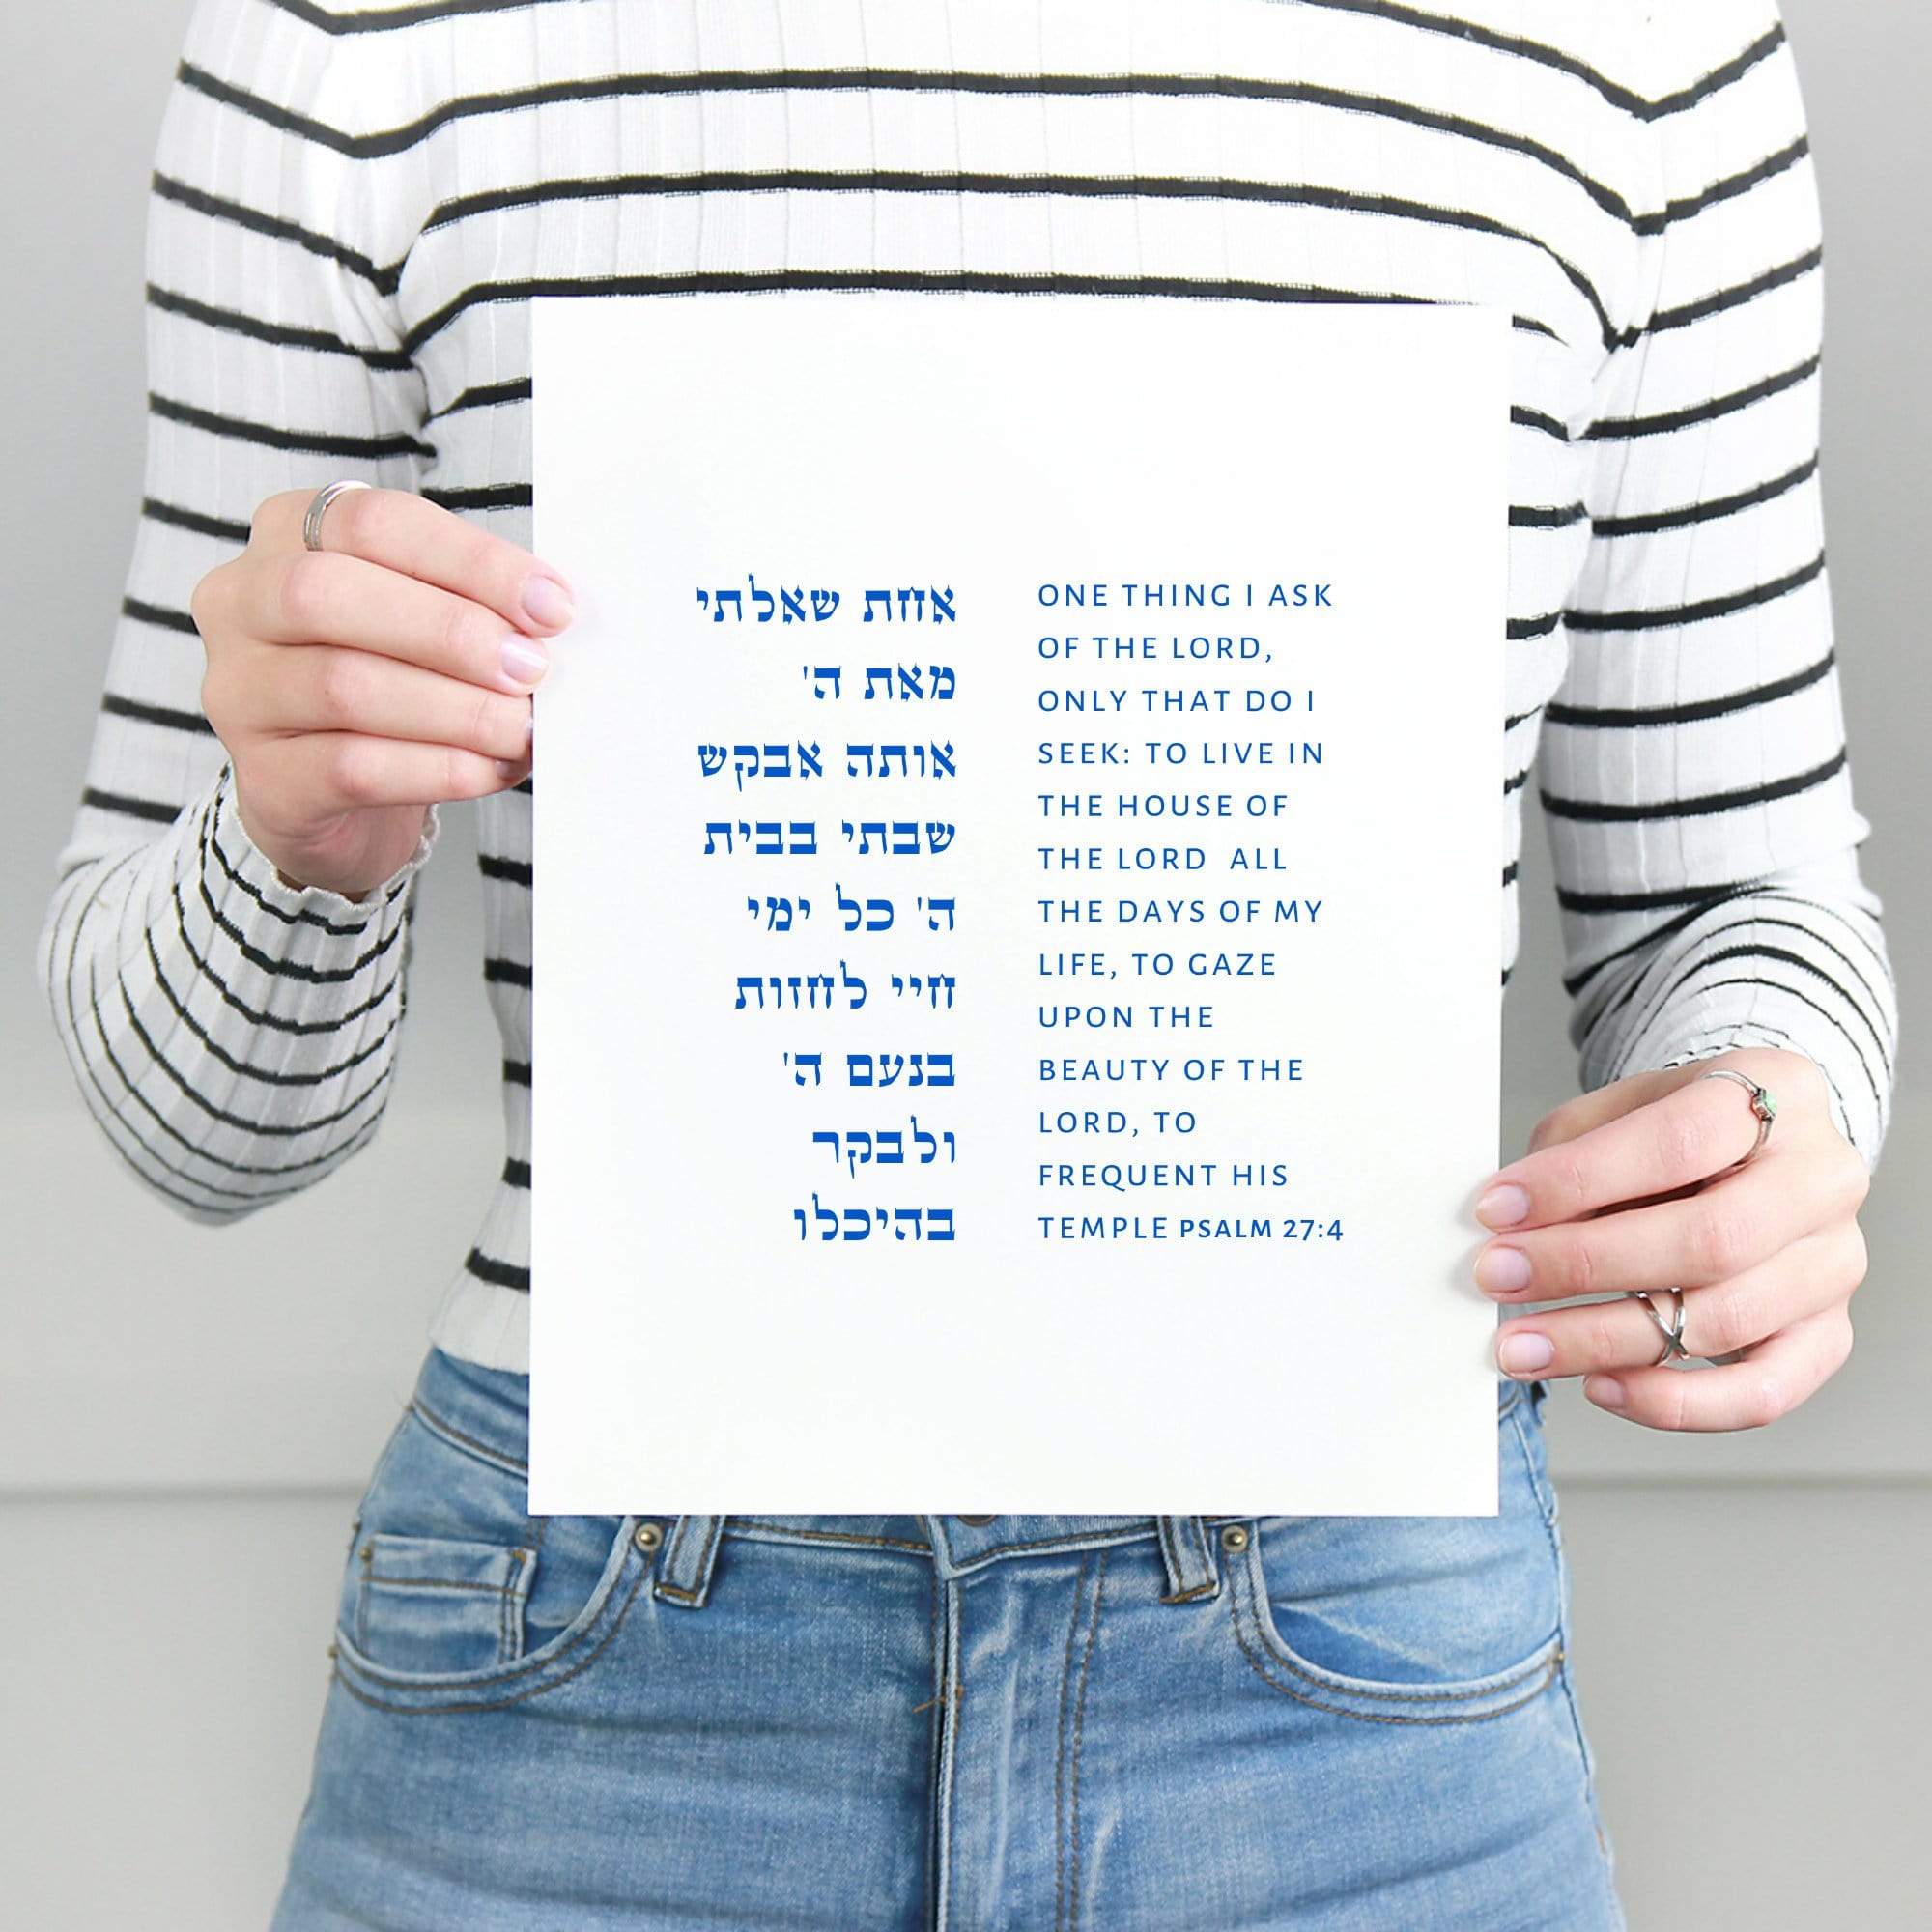 אחת שאלתי
מאת ה'
אותה אבקש
שבתי בבית
ה' כל ימי
חיי לחזות
בנעם ה'
ולבקר
בהיכלו
ONE THING I ASK
OF THE LORD,
ONLY THAT DO I
SEEK: TO LIVE IN
THE HOUSE OF
THE LORD ALL
THE DAYS OF MY
LIFE, TO GAZE
UPON THE
BEAUTY OF THE
LORD, TO
FREQUENT HIS
TEMPLE PSALM 27:4